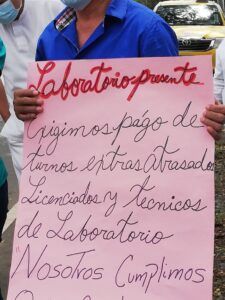 Laboratorio presente
Exigimos págo de
turnos extras atrasados
Licenciados y tecnicos
de Laboratorio
"Nosotros Cumplimos